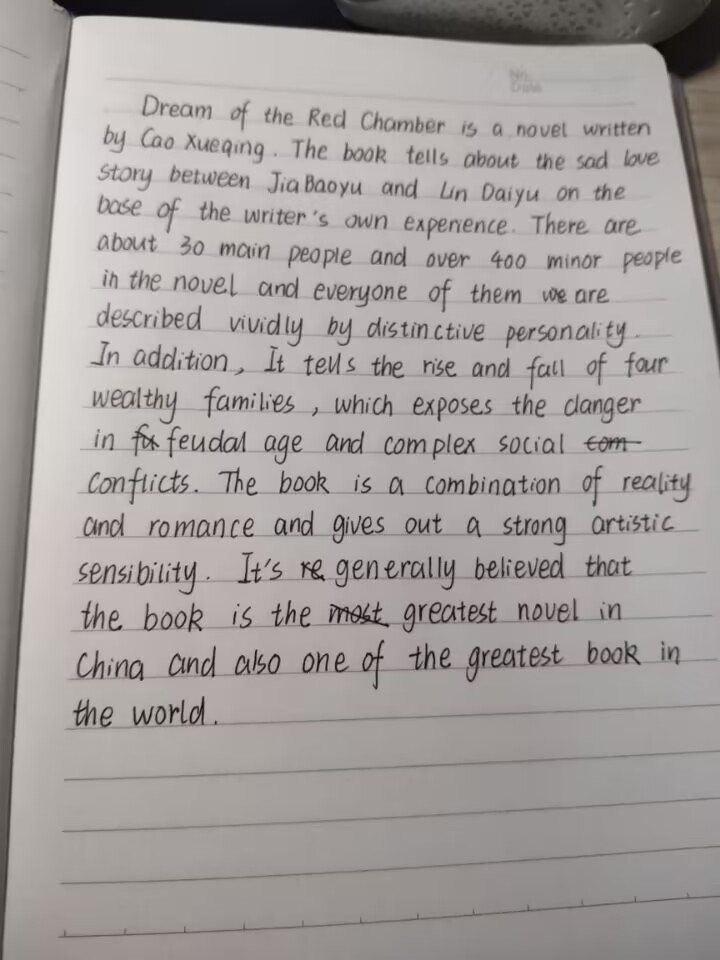 No.
Date
Dream of the Red Chamber is a novel written
by Cao Xueqing. The book tells about the sad love
story between Jia Baoyu and Lin Daiyu on the
base of the writer's own experience. There are
about 30 main people and over 400 minor people
in the novel and everyone of them we are
described vividly by distinctive personality.
In addition, It tells the rise and fall of four
wealthy families, which exposes the danger
in feudal age and complex social com
conflicts. The book is a combination of reality
and romance and gives out a strong artistic
sensibility. It's re generally believed that
the book is the most greatest novel in
China and also one of the greatest book in
the world.